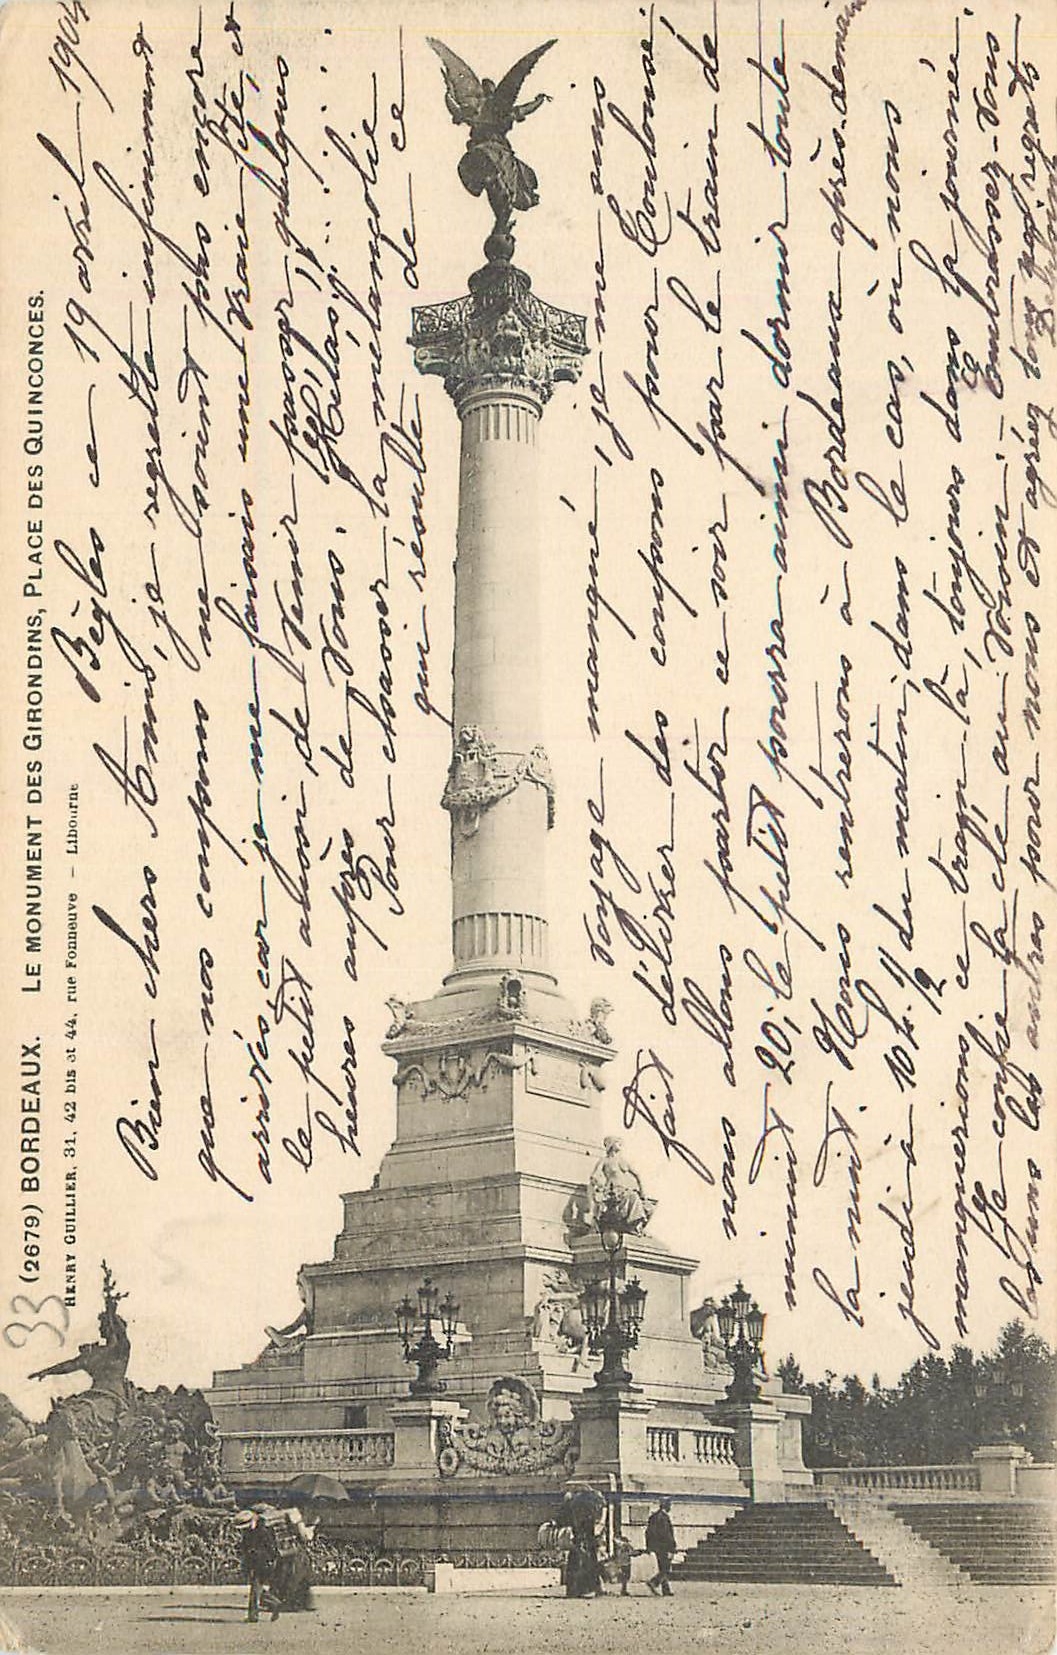 (2679) BORDEAUX. LE MONUMENT DES GIRONDINS, PLACE DES QUINCONCES.
HENRY GUILLIER, 31, 42 bis et 44, rue Fonneuve – Libourne
33
Bègles ce 19 avril 1904
Bien chers Amis, je regrette infiniment
que nos coupons ne soient pas encore
arrivés, car je me faisais une vraie fête, et
le petit aussi, de venir passer quelques
heures auprès de vous. Hélas! !! ...
Pour chasser la mélancolie
qui résulte de ce
voyage manqué, je me suis
fait délivrer des coupons pour Toulouse;
nous allons partir ce soir par le train de
minuit 20; le petit pourra ainsi dormir toute
la nuit. Nous rentrerons à Bordeaux après-demain
jeudi à 10 h. 1/2 du matin, dans le cas, où nous
manquerions ce train-là, toujours dans la journée.
Je confie la clé au voisin. Embrassez-vous
les uns les autres pour nous et agréez tous nos regrets